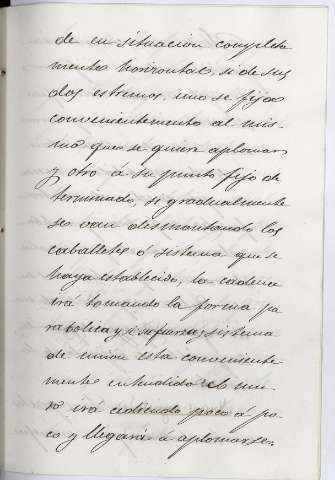 de su situacion completa
mente horizontal, si de sus
dos estremos, uno se fija
convenientemente al mis-
mo que se quiere aplomar
y otro á su punto fijo de
terminado, si gradualmente
se van desmontando los
caballetes ó sistema que se
haya establecido, la cadena
irá tomando la forma pa
rabolica y si su fuerza y sistema
de union esta conveniente
mente entendido el mu-
ro irá cediendo poco á po-
co y llegará á aplomarse.